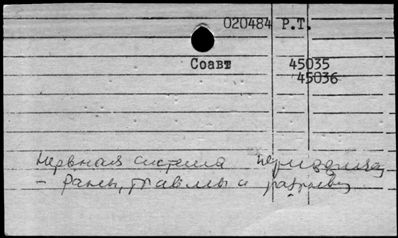 020484 Р.Т.
Соавт 45035
45036
Нервная система
- Раны, травмы и разрывы